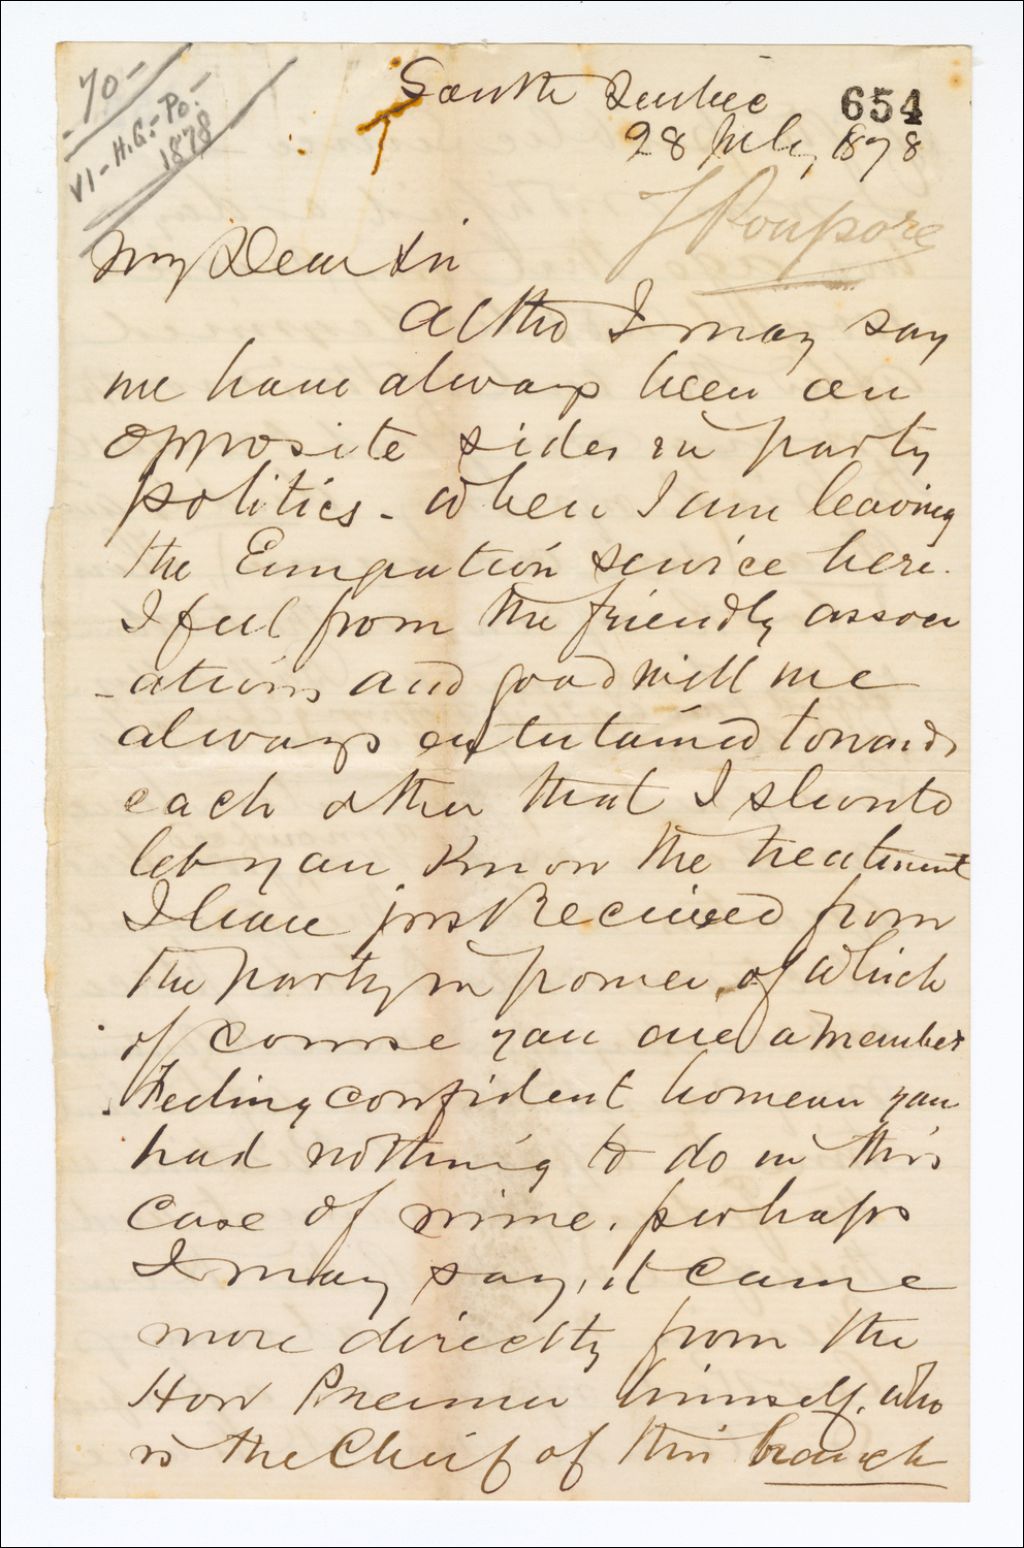 -70-
VI-H.G.-Po.-
1878
South Quebec
654
28 July, 1878
J Poupore
My Dear Sir
Altho I may say
we have always been on
opposite sides in party
politics - when I am leaving
the Emigration service here.
I feel from the friendly associ
-ations and goodwill we
always entertained towards
each other that I should
let you know the treatment
I have just Received from
the party in power, of which
of course you are a member
Feeling confident however you
had nothing to do in this
case of mine. perhaps
I may say, it came
more directly from the
Hon Premier himself, who
is the Chief of this branch